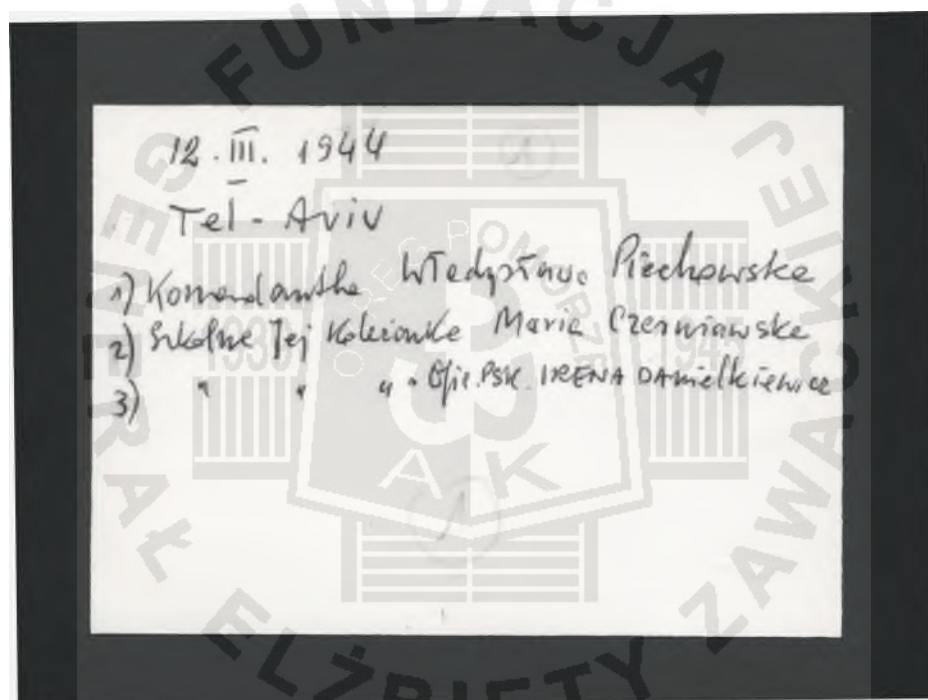 12.III. 1944
Tel-Aviv
1) Komendantka Władysława Piechowska
2) Szkolne Jej Koleżanke Maria Czerniawska
3) " " " Ofic. PSK. IRENA DAnielkiewicz
1
FUNDACJA
GENERAŁ ELŻBIETY ZAWACKIEJ
OKRĘG POMORZE
1939 1945
AK